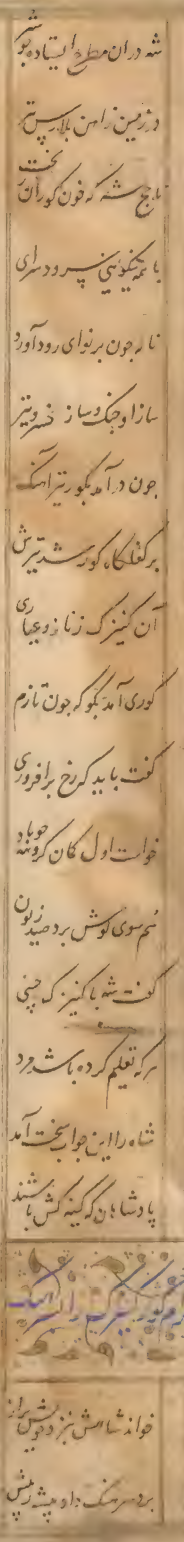 شه دران مطرح ایستاده بو شیر
در زمین زاهن بلارس تر
تاج شه که خون کوران بخت
با همه نیکوئی سرود سرای
ناله چون بر نوای رود آورد
ساز او چنک و ساز خسرو تیر
چون در آمد بکور تیر آهنک
بر کفلکاه کور شد تیرش
آن کنیزک ز ناز و عیاری
کوری آمد بکو که چون تازم
کفت باید که رخ برافروزی
خواست اول کمان کروهه چو باد
سم سوی کوش برد صید زبون
کفت شه با کنیزک چینی
هر که تعلیم کرده باشد مرد
شاه را این جواب سخت آمد
پادشاهان که کینه کش باشند
کنیزک را سرهنک
خواند شاهش بنزد خویش فراز
برد سرهنک داد پیشه ز پیش